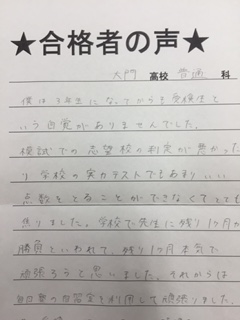 ★合格者の声★
大門 高校 普通 科
僕は3年生になってからも受検生と
いう自覚がありませんでした。
模試での志望校の判定が悪かった
り学校の実力テストでもあまりいい
点数をとることができなくてとても
焦りました。学校で先生に残り1ヶ月が
勝負といわれて、残り1ヶ月本気で
頑張ろうと思いました。それからは
自習室を利用して頑張りました。